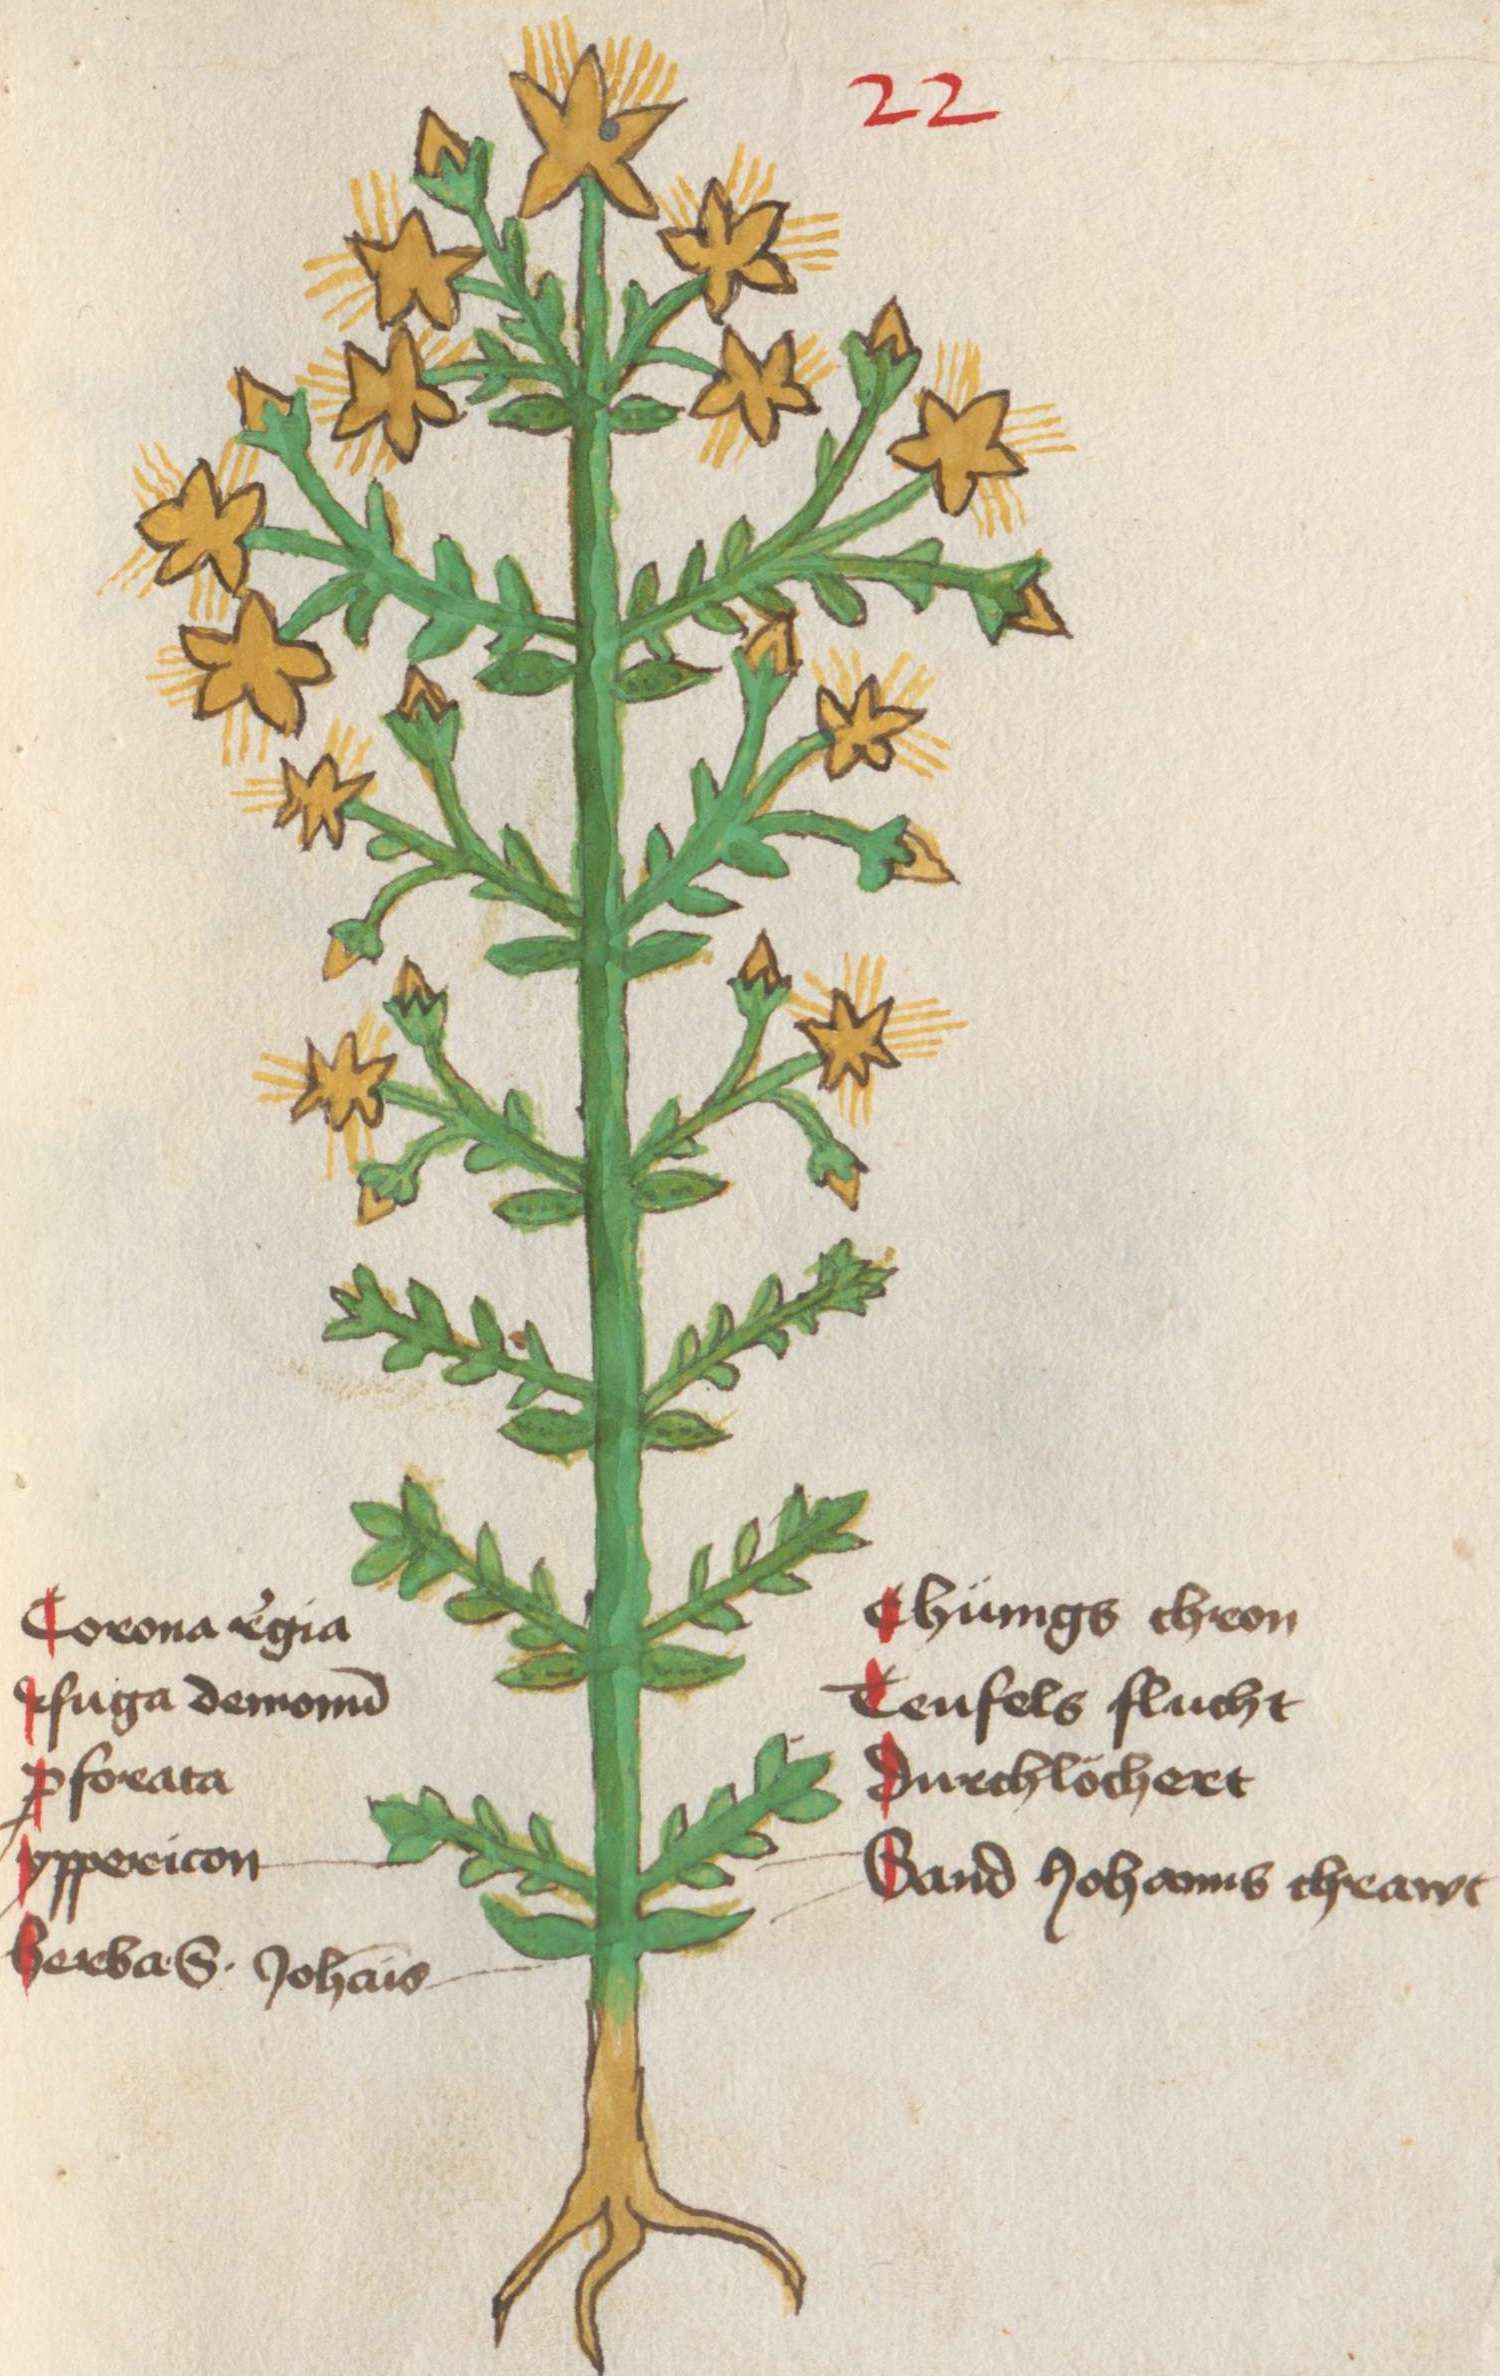 22
Corona regia
fuga demonu̅
ꝑforata
yppericon
herba. S. Joha̅is
Chünigs chron
Teufels flucht
Durchlöchert
Sand Johanns chrawt